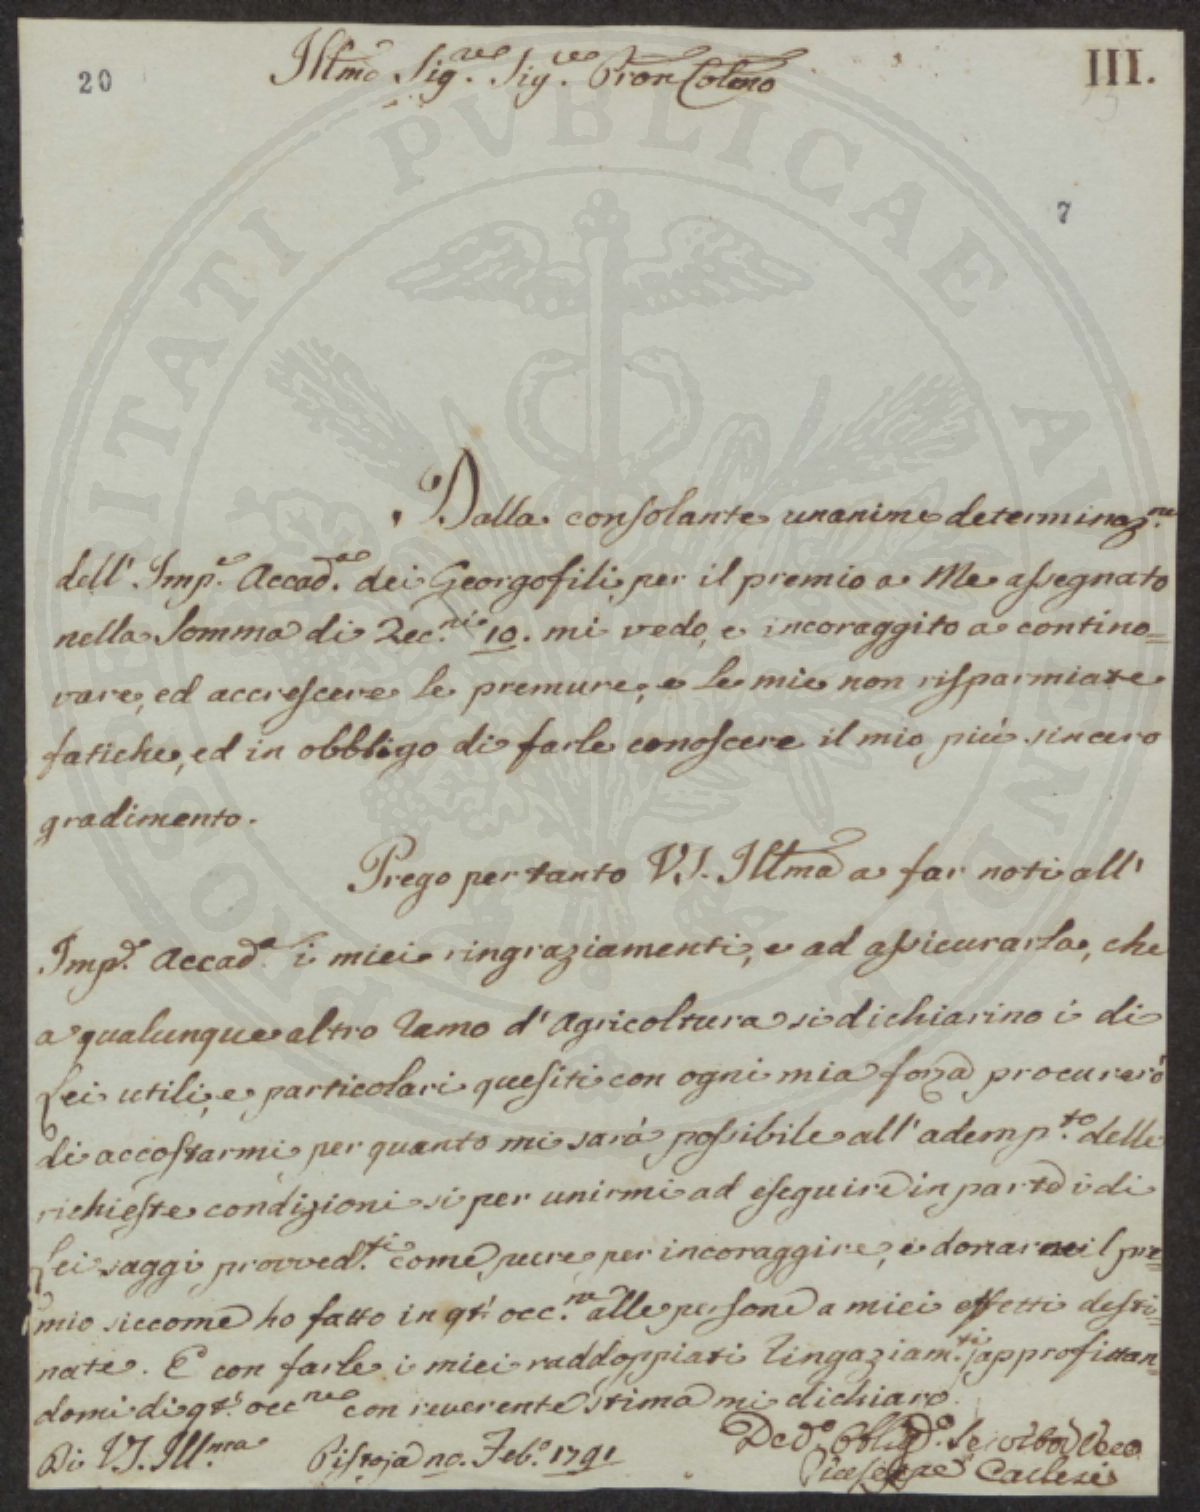 20
III.
Illmo Sig.re Sig.re Pron Colmo
7
Dalla consolante unanime determinaz.ne
dell' Imp.e Accad.a dei Georgofili, per il premio a Me assegnato
nella Somma di Zec.ni 10. mi vedo, e incoraggito a contino=
vare, ed accrescere le premure, e le mie non risparmiate
fatiche, ed in obbligo di farle conoscere il mio più sincero
gradimento.
Prego per tanto V.S. Illma a far noti all'
Imp.e Accad.a i miei ringraziamenti, e ad assicurarla, che
a qualunque altro Ramo d'Agricoltura si dichiarino i di
Lei utili, e particolari quesiti con ogni mia forza procurerò
di accostarmi per quanto mi sarà possibile all'ademp.to delle
richieste condizioni si per unirmi ad eseguire in parte i di
Lei saggi provved.ti come pure per incoraggire, e donarne il pre=
mio siccome ho fatto in qt. occ.ne alle persone a miei effetti desti=
nate. E con farle i miei raddoppiati Ringaziam.ti, approfittan=
domi di qt. occ.ne con reverente stima mi dichiaro
Di V.S. Ill.ma
Pistoja Feb.o 1791
Ded.o Obblig.o
PROSPERITATI PVBLICAE AVGENDAE